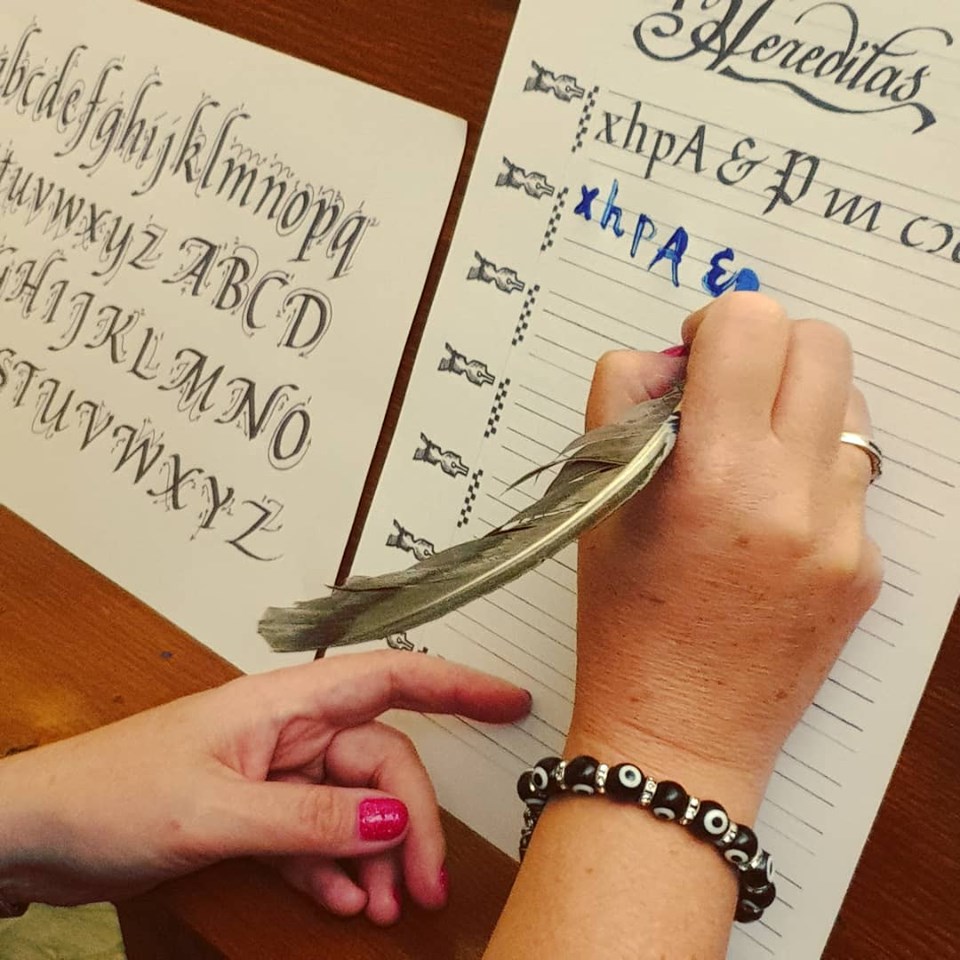 abcdefghijklmnopq
tuvwxyz ABCD
GHIJKLMNO
STUVWXYZ
Hereditas
xhpA & p m
xhpA &